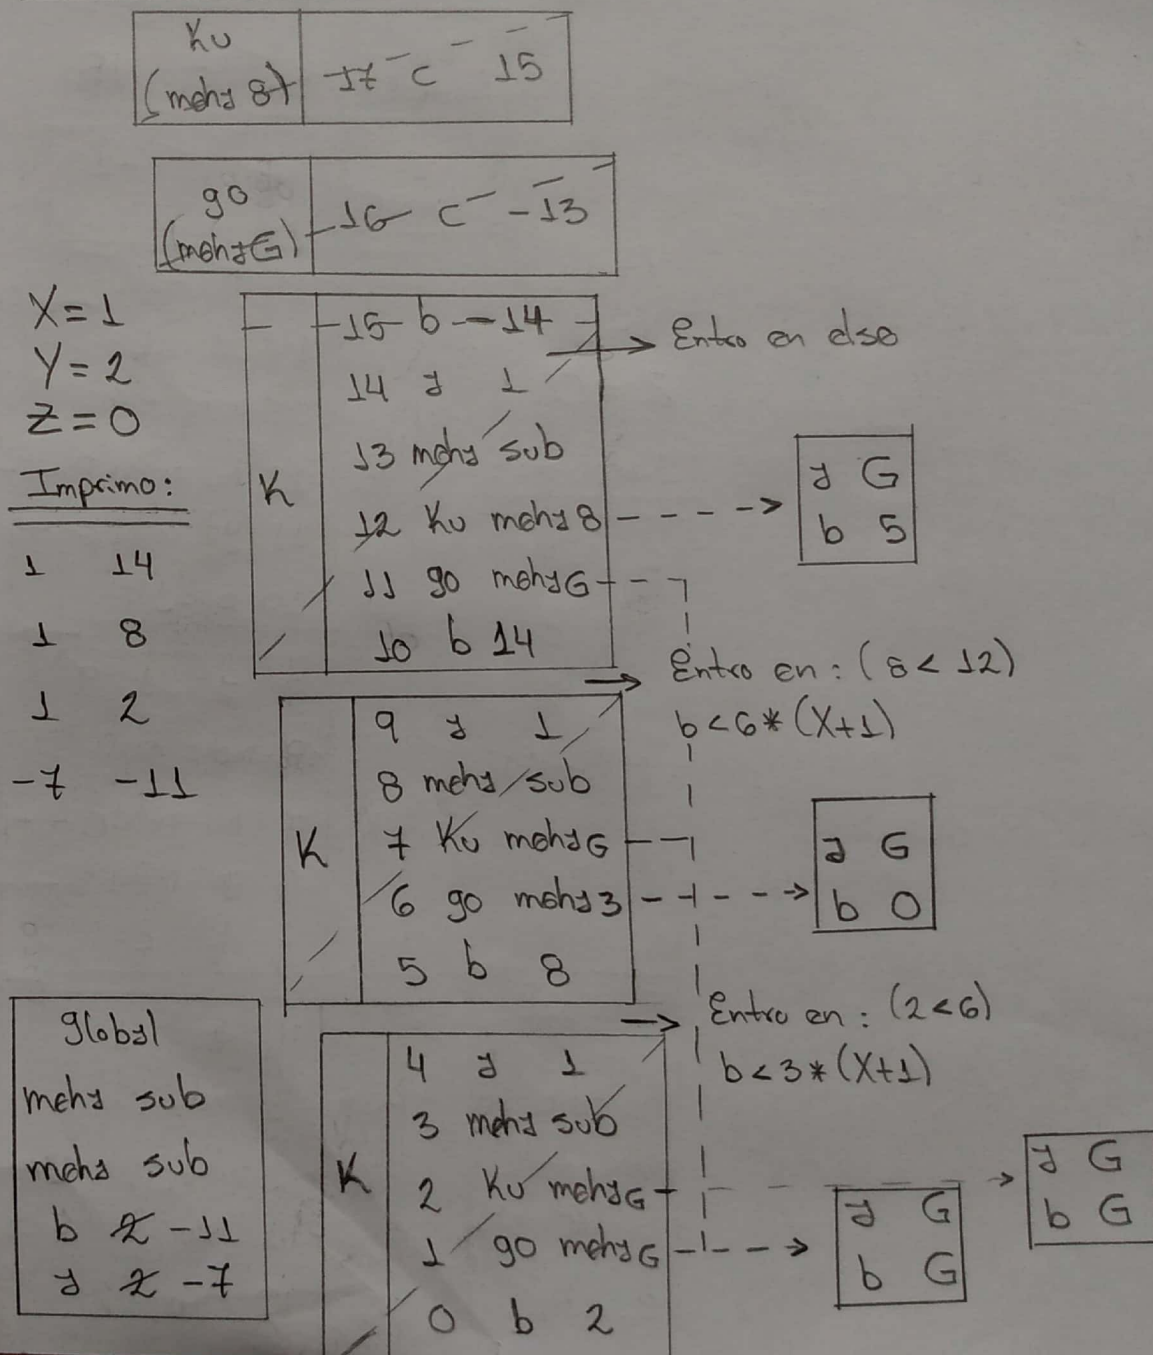 Ku
(meha 8) 17 c 15
go
(mehaG) 16 c -13
X=1
Y=2
Z=0
Imprimo:
1 14
1 8
1 2
-7 -11
K
15 b -14
14 a 1
13 meha sub
12 Ku meha 8
11 go mehaG
10 b 14
Entro en else
a G
b 5
Entro en: (8 < 12)
b < 6 * (X+1)
K
9 a 1
8 meha sub
7 Ku mehaG
6 go meha3
5 b 8
a G
b 0
Entro en: (2<6)
b < 3 * (X+1)
K
4 a 1
3 meha sub
2 Ku mehaG
1 go mehaG
0 b 2
a G
b G
a G
b G
global
meha sub
meha sub
b 2 -11
a 2 -7